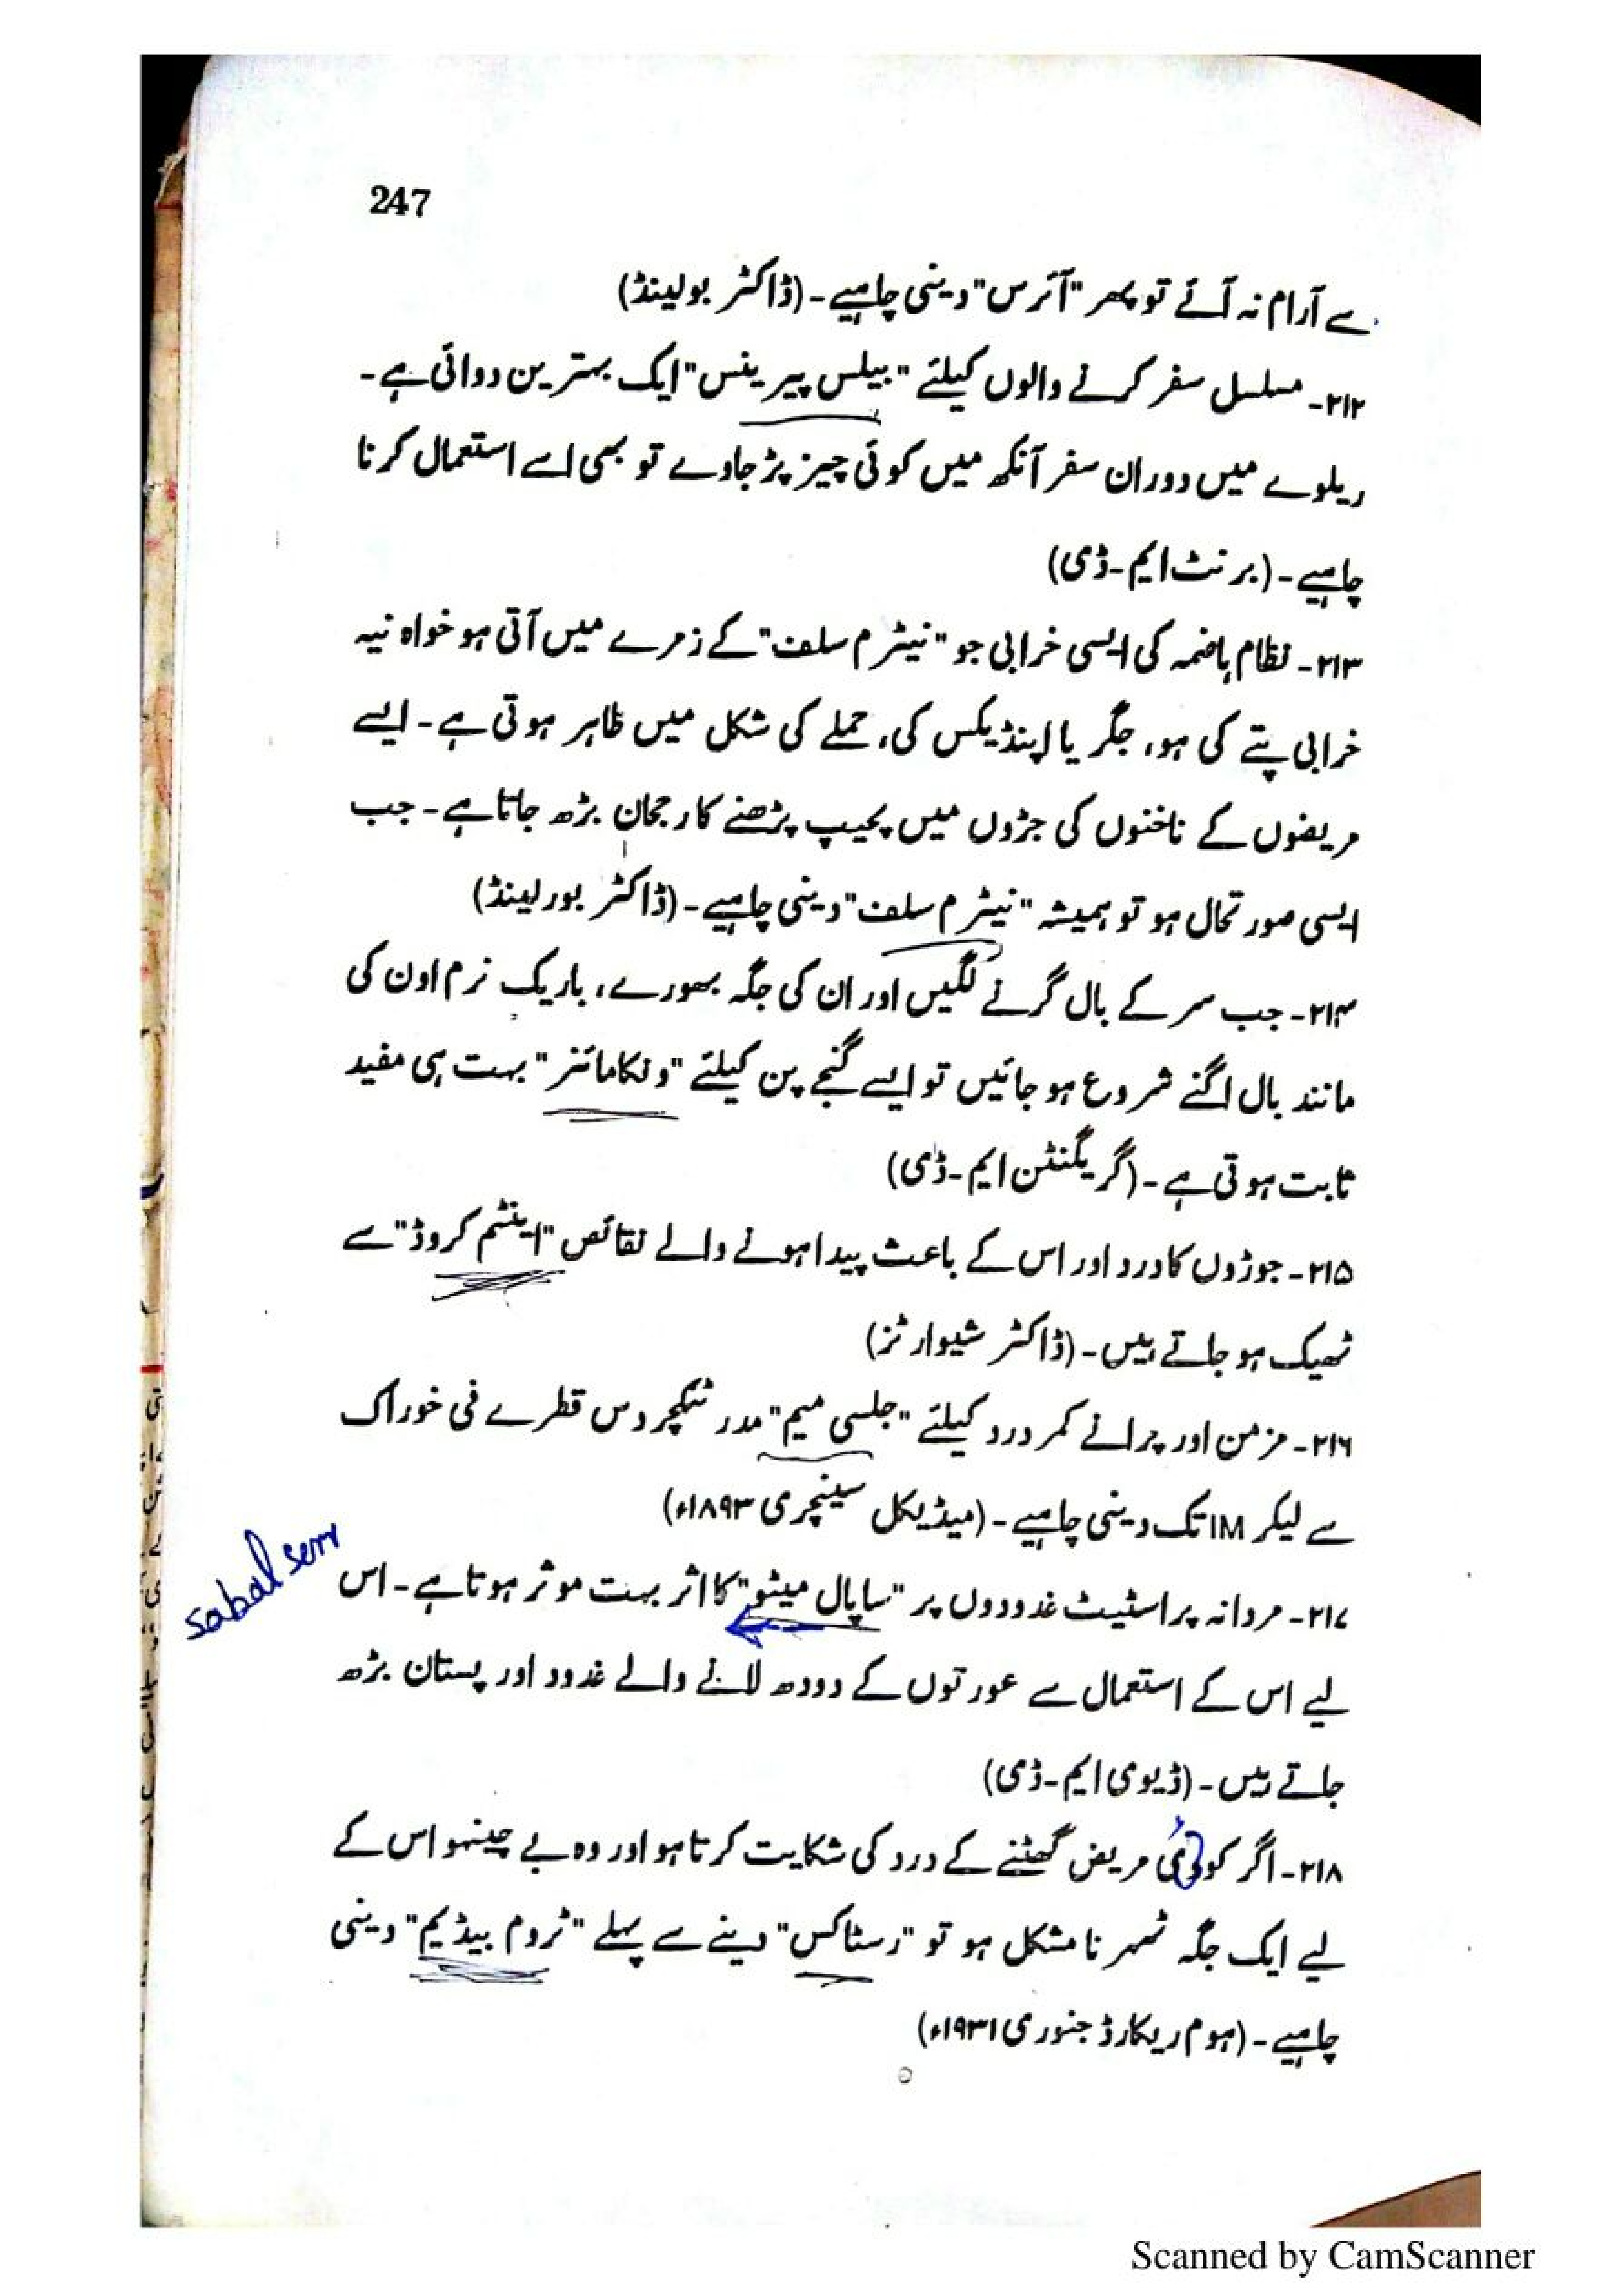 247
سے آرام نہ آئے تو پھر "آئرس" دینی چاہیے۔ (ڈاکٹر بولینڈ)
۲۱۲۔ مسلسل سفر کرنے والوں کیلئے "بیلس پیرینس" ایک بہترین دوائی ہے۔
ریلوے میں دوران سفر آنکھ میں کوئی چیز پڑ جاوے تو بھی اسے استعمال کرنا
چاہیے۔ (برنٹ ایم۔ڈی)
۲۱۳۔ نظام ہاضمہ کی ایسی خرابی جو "نیٹرم سلف" کے زمرے میں آتی ہو خواہ نیہ
خرابی پتے کی ہو، جگر یا اپنڈیکس کی، حملے کی شکل میں ظاہر ہوتی ہے۔ ایسے
مریضوں کے ناخنوں کی جڑوں میں پھیپ پڑھنے کا رجحان بڑھ جاتا ہے۔ جب
ایسی صورتحال ہو تو ہمیشہ "نیٹرم سلف" دینی چاہیے۔ (ڈاکٹر بورلینڈ)
۲۱۴۔ جب سر کے بال گرنے لگیں اور ان کی جگہ بھورے، باریک نرم اون کی
مانند بال اگنے شروع ہو جائیں تو ایسے گنجے پن کیلئے "ونکامائنر" بہت ہی مفید
ثابت ہوتی ہے۔ (گریگنٹن ایم۔ڈی)
۲۱۵۔ جوڑوں کا درد اور اس کے باعث پیدا ہونے والے نقائص "اینٹم کروڈ" سے
ٹھیک ہو جاتے ہیں۔ (ڈاکٹر شیوارٹز)
۲۱۶۔ مزمن اور پرانے کمر درد کیلئے "جلسی میم" مدر ٹنکچر دس قطرے فی خوراک
سے لیکر IM تک دینی چاہیے۔ (میڈیکل سینچری ۱۸۹۳ء)
sabal serr
۲۱۷۔ مردانہ پراسٹیٹ غدودوں پر "ساپال میٹو" کا اثر بہت موثر ہوتا ہے۔ اس
لیے اس کے استعمال سے عورتوں کے دودھ لانے والے غدود اور پستان بڑھ
جاتے ہیں۔ (ڈیوی ایم۔ڈی)
۲۱۸۔ اگر کوئی مریض گھٹنے کے درد کی شکایت کرتا ہو اور وہ بے چینہو اس کے
لیے ایک جگہ ٹھہرنا مشکل ہو تو "رسٹاکس" دینے سے پہلے "ٹروم بیڈیم" دینی
چاہیے۔ (ہوم ریکارڈ جنوری ۱۹۳۱ء)
Scanned by CamScanner